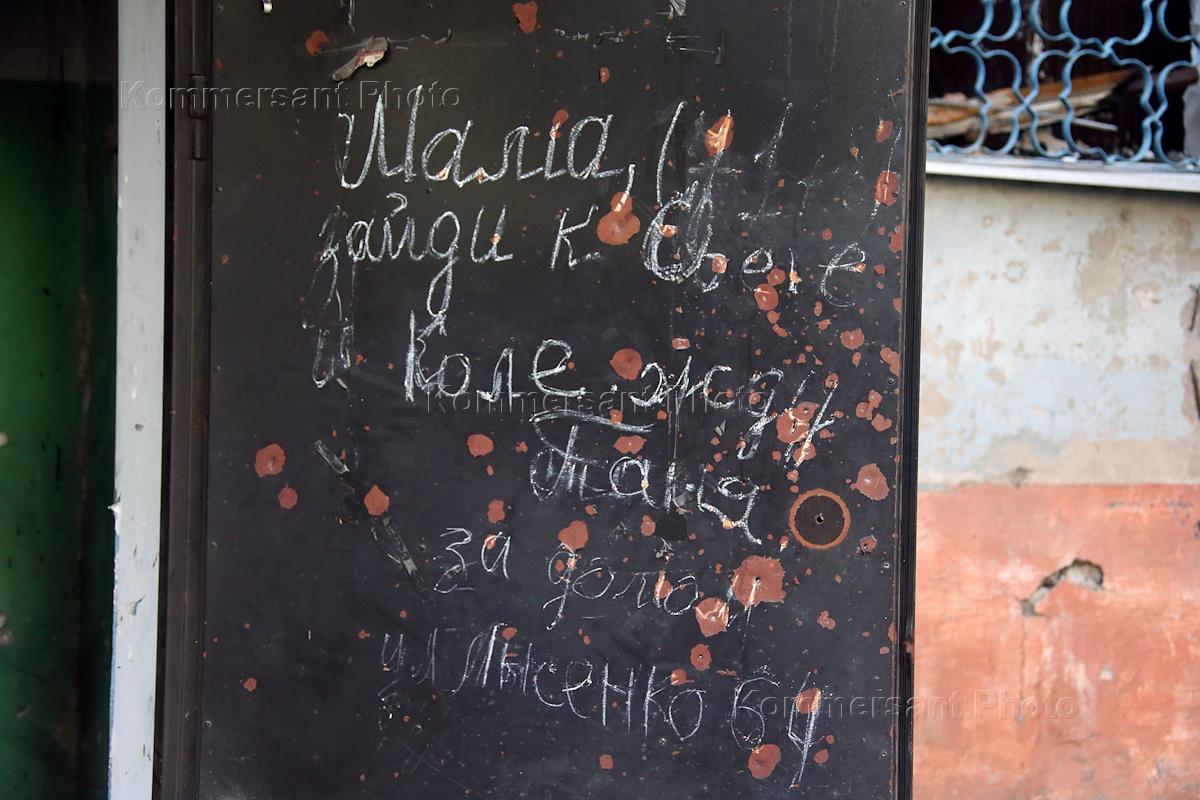 Kommersant Photo
Мама,
зайди к Свете
Коле. жду
Kommersant Photo
Таня
за
ул Лысенко 64
Kommersant Photo